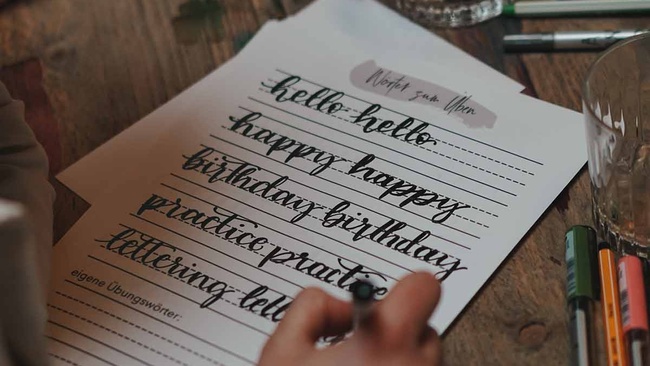 Wörter zum Üben
hello hello
happy happy
birthday birthday
practice practice
lettering
eigene Übungswörter: